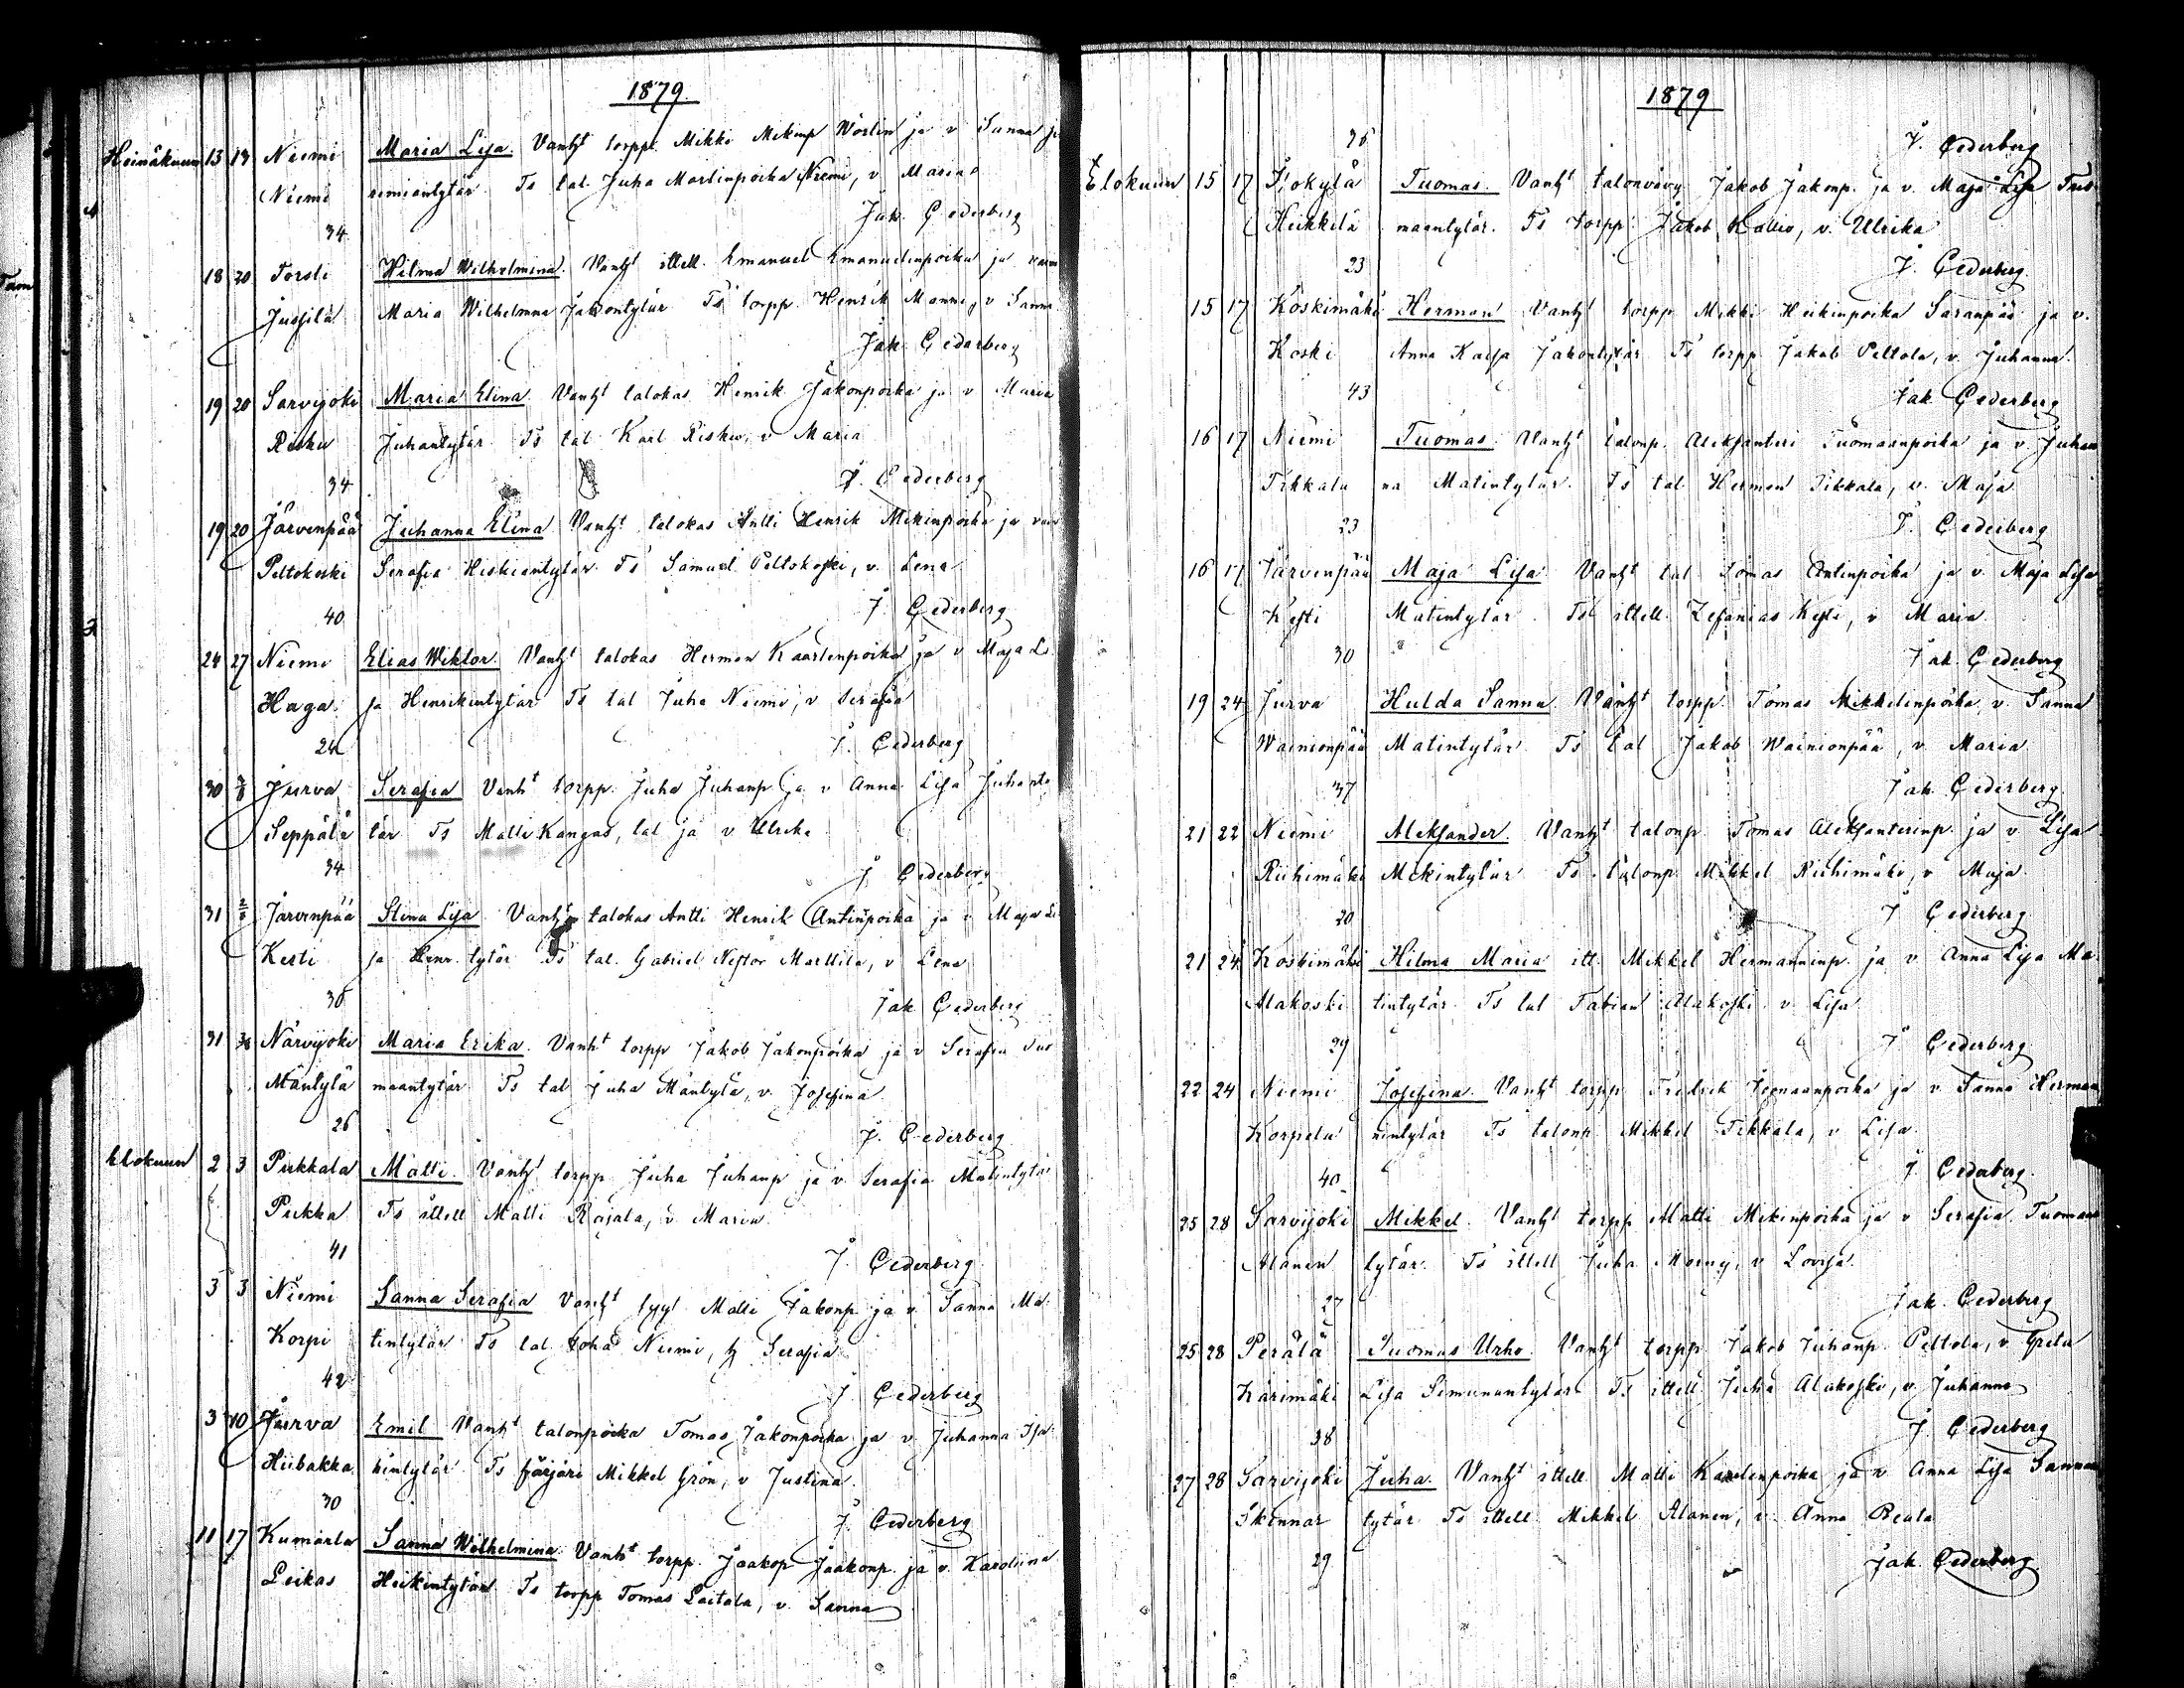 1879
Heinäkuun 13 13 Niemi Maria Lisa. Vanht torpp. Mikki Mikinp Worlin ja v Sanna Je
Niemi remiantytär Ts tal. Juha Martinpoika Niemi, v Maria
34 Jak Cederberg
18 20 Torsti Hilma Wilhelmina. Vanht ittell. Emanuel Emanuelinpoika ja vaim
Jussila Maria Wilhelmina Jakontytär Ts torpp Henrik Manni, v Sanna
Jak Cederberg
19 20 Sarvijoki Maria Elina Vanht talokas Henrik Jakonpoika ja v Maria
Risku Juhantytär Ts tal Karl Risku, v Maria
34 J. Cederberg
19 20 Järvenpää Juhanna Elina Vanht talokas Antti Henrik Mikinpoika ja vaim
Peltokoski Serafia Hiskiantytär Ts Samuel Peltokoski, v. Lena
40 J Cederberg
24 27 Niemi Elias Wiktor. Vanht talokas Herman Kaarlenpoika ja v Maja Li
Haga ja Henrikintytär Ts tal Juha Niemi, v Serafia
24 J. Cederberg
30 3/8 Jurva Serafia Vanht torpp. Juha Juhanp ja v Anna Lisa Juhanty
Seppälä tär Ts Matti Kangas, tal ja v Ulrika
34 J Cederberg
31 2/8 Järvenpää Stina Lisa Vanht talokas Antti Henrik Antinpoika ja v Maja Li
Kesti ja Henr. tytär Ts tal. Gabriel Nestor Marttila, v Lena
36 Jak Cederberg
31 3/8 Närvijoki Maria Erika. Vanht torpp Jakob Jakonpoika ja v Serafia Tuo
Mäntylä maantytär Ts tal Juha Mäntylä, v. Josefina
26 J. Cederberg
Elokuun 2 3 Pukkala Matti. Vanht torpp Juha Juhanp ja v Serafia Matintytär
Pukka Ts ittell Matti Rajala, v Maria
41 J. Cederberg
3 3 Niemi Sanna Serafia Vanht Matti Jakonp ja v Sanna Ma
Korpi tintytär Ts tal Joha Niemi, h Serafia
42 J Cederberg
3 10 Jurva Emil Vanht talonpoika Tomas Jakonpoika ja v. Juhanna Isa
Hiibakka kintytär Ts färjäri Mikkel Grön, v Justina
30 J. Cederberg
11 17 Kumarla Sanna Wilhelmina. Vanht torpp. Jaakop Jaakonp ja v. Karoliina
Leikas Heikintytär Ts torpp Tomas Laitala, v. Sanna
1879
36 J. Cederberg
Elokuun 15 17 Kokylä Tuomas. Vanht talonvävy Jakob Jakonp. ja v. Maja Lisa Tuo
Heikkilä maantytär. Ts torpp. Jakob Kallio, v. Ulrika
23 J. Cederberg
15 17 Koskimäki Herman Vanht torpp Mikki Heikinpoika Saranpää ja v.
Koski Anna Kaisa Jakontytär Ts torpp Jakob Peltola, v. Juhanna.
43 Jak Cederberg
16 17 Niemi Tuomas Vanht talonp. Aleksanteri Tuomaanpoika ja v. Juhan
Tikkala na Matintytär. Ts tal Herman Tikkala, v. Maja
23 J. Cederberg
16 17 Järvenpää Maja Lisa Vanht tal Tomas Antinpoika ja v. Maja Lisa
Kesti Matintytär. Ts ittell. Zefanias Kesti, v Maria
30 Jak. Cederberg
19 24 Jurva Hulda Sanna Vanht torpp. Tomas Mikkelinpoika, v. Sanna
Wainionpää Matintytär Ts tal Jakob Wainionpää, v. Maria
37 Jak. Cederberg
21 22 Niemi Aleksander. Vanht talonp Tomas Aleksanterinp. ja v Lisa
Riihimäki Mikintytär Ts talonp Mikkel Riihimäki, v Maja
20 J Cederberg
21 24 Koskimäki Hilma Maria itt. Mikkel Hermanninp ja v Anna Lisa Ma
Alakoski tintytär Ts tal Fabian Alakoski v Lisa
29 J Cederberg
22 24 Niemi Josefina. Vanht torpp Fredrik Joonaanpoika ja v. Sanna Herman
Korpela nintytär Ts talonp Mikkel Tikkala, v Lisa
40 J Cederberg
25 28 Sarvijoki Mikkel Vanht torpp Matti Mikinpoika ja v Serafia Tuomaan
Alanen tytär Ts ittell Juha Morny, v Lovisa
27 Jak Cederberg
25 28 Perälä Tuomas Urho Vanht torpp Jakob Juhanp Peltola, v Greta
Karimäki Lisa Simunantytär Ts ittell Juha Alakoski, v. Juhanna
38 J Cederberg
27 28 Sarvijoki Juha. Vanht ittell Matti Kaarlenpoika ja v Anna Lisa Sanna
Skinnar tytär Ts ittell Mikkel Alanen, v. Anna Beata
29 Jak Cederberg